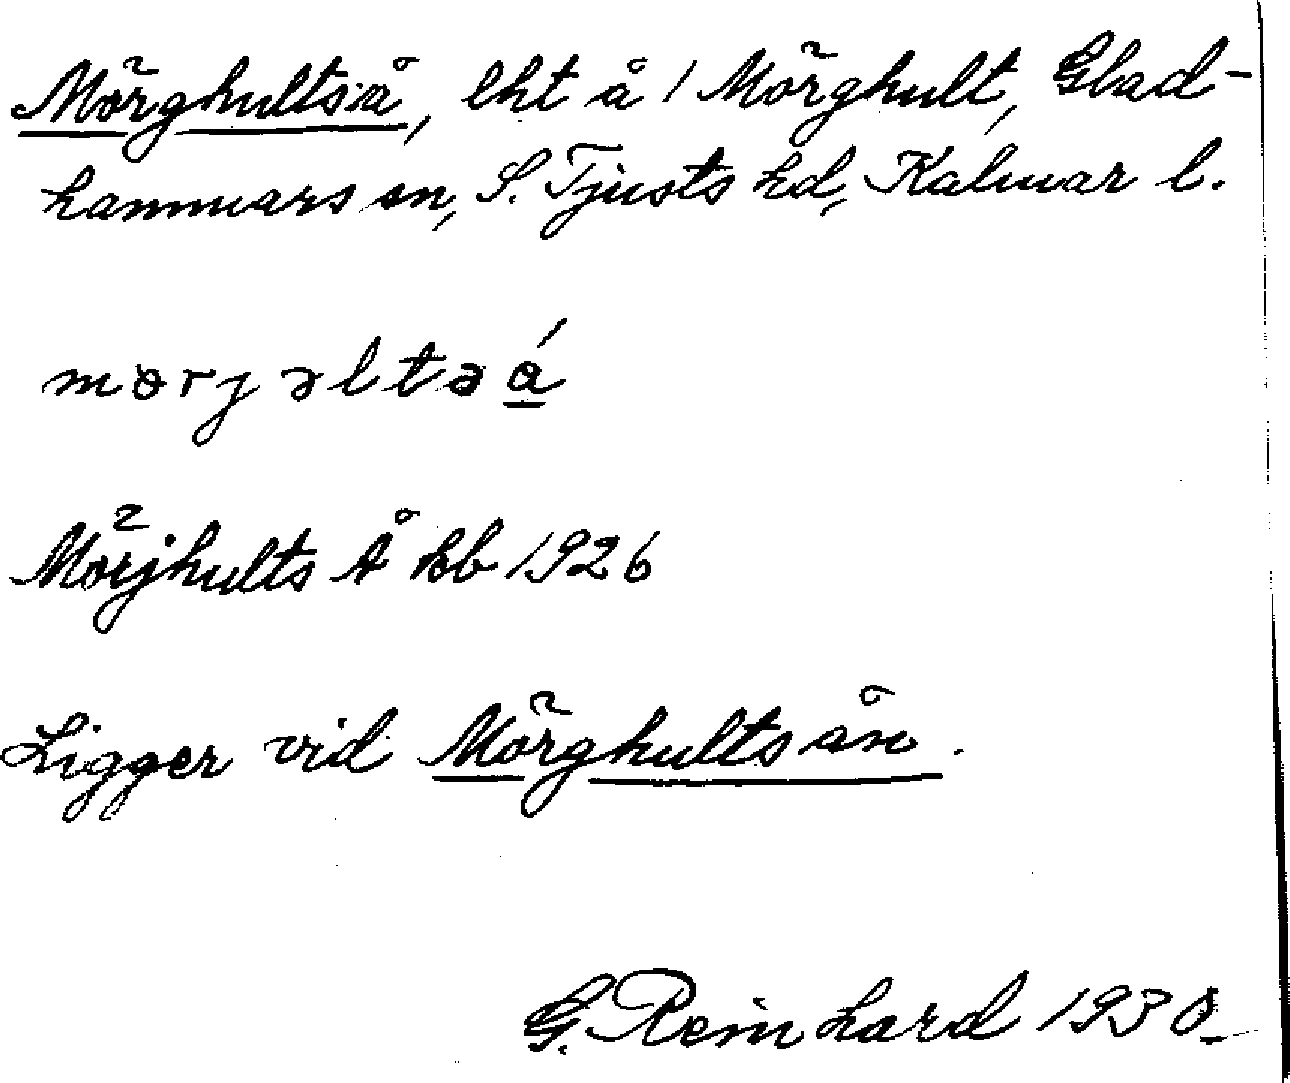 Mörghultså, lht å / Mörghult, Glad-
hammars sn, S. Tjusts hd, Kalmar l.
mɵrjəltsá
Mörjhults Å kb 1926
Ligger vid Mörghultsån.
G. Reinhard 1930.